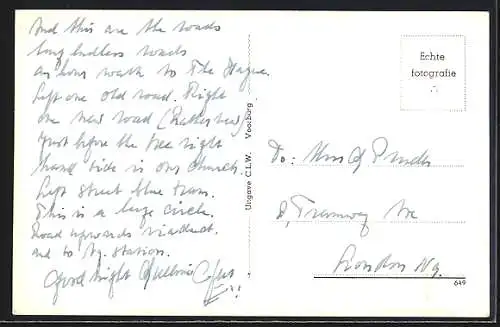 And this are the roads
long endless roads
an hour walk to The Hague.
Left one old road. Right
one new road
just before the tree right
hand side is our church.
Left street blue tram.
This is a large circle.
Road upwards viaduct.
and to Ry. station.
Good night
Uitgave C.L.W. Voorburg
Echte
fotografie
To: Mrs
8, Tramway Ave
London
649